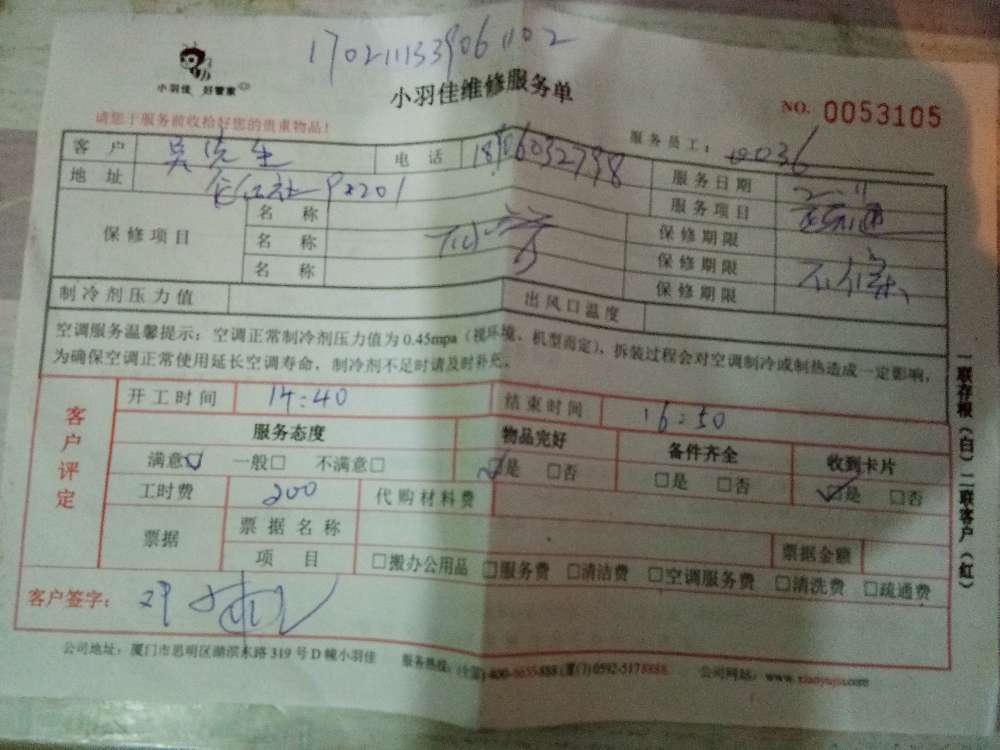 1702111339061102
小羽佳 好管家
小羽佳维修服务单
NO. 0053105
请您于服务前收拾好您的贵重物品!
服务员工:
客户 吴先生 电话 服务日期
地址 服务项目
保修项目 名称 保修期限
名称 保修期限 不保
名称 保修期限
制冷剂压力值 出风口温度
空调服务温馨提示:空调正常制冷剂压力值为0.45mpa(视环境、机型而定),拆装过程会对空调制冷或制热造成一定影响,
为确保空调正常使用延长空调寿命,制冷剂不足时请及时补充。
客户评定
开工时间 14:40 结束时间 16:50
服务态度 物品完好 备件齐全 收到卡片
满意☑ 一般□ 不满意□ ☑是 □否 □是 □否 ☑是 □否
工时费 200 代购材料费
票据 票据名称 票据金额
项目 □搬办公用品 □服务费 □清洁费 □空调服务费 □清洗费 □疏通费
客户签字:
公司地址:厦门市思明区湖滨东路319号D幢小羽佳 服务热线:(全国)400-6655-888 (厦门)0592-5178888 公司网站:www.xiaoyujia.com
一联存根(白)二联客户(红)